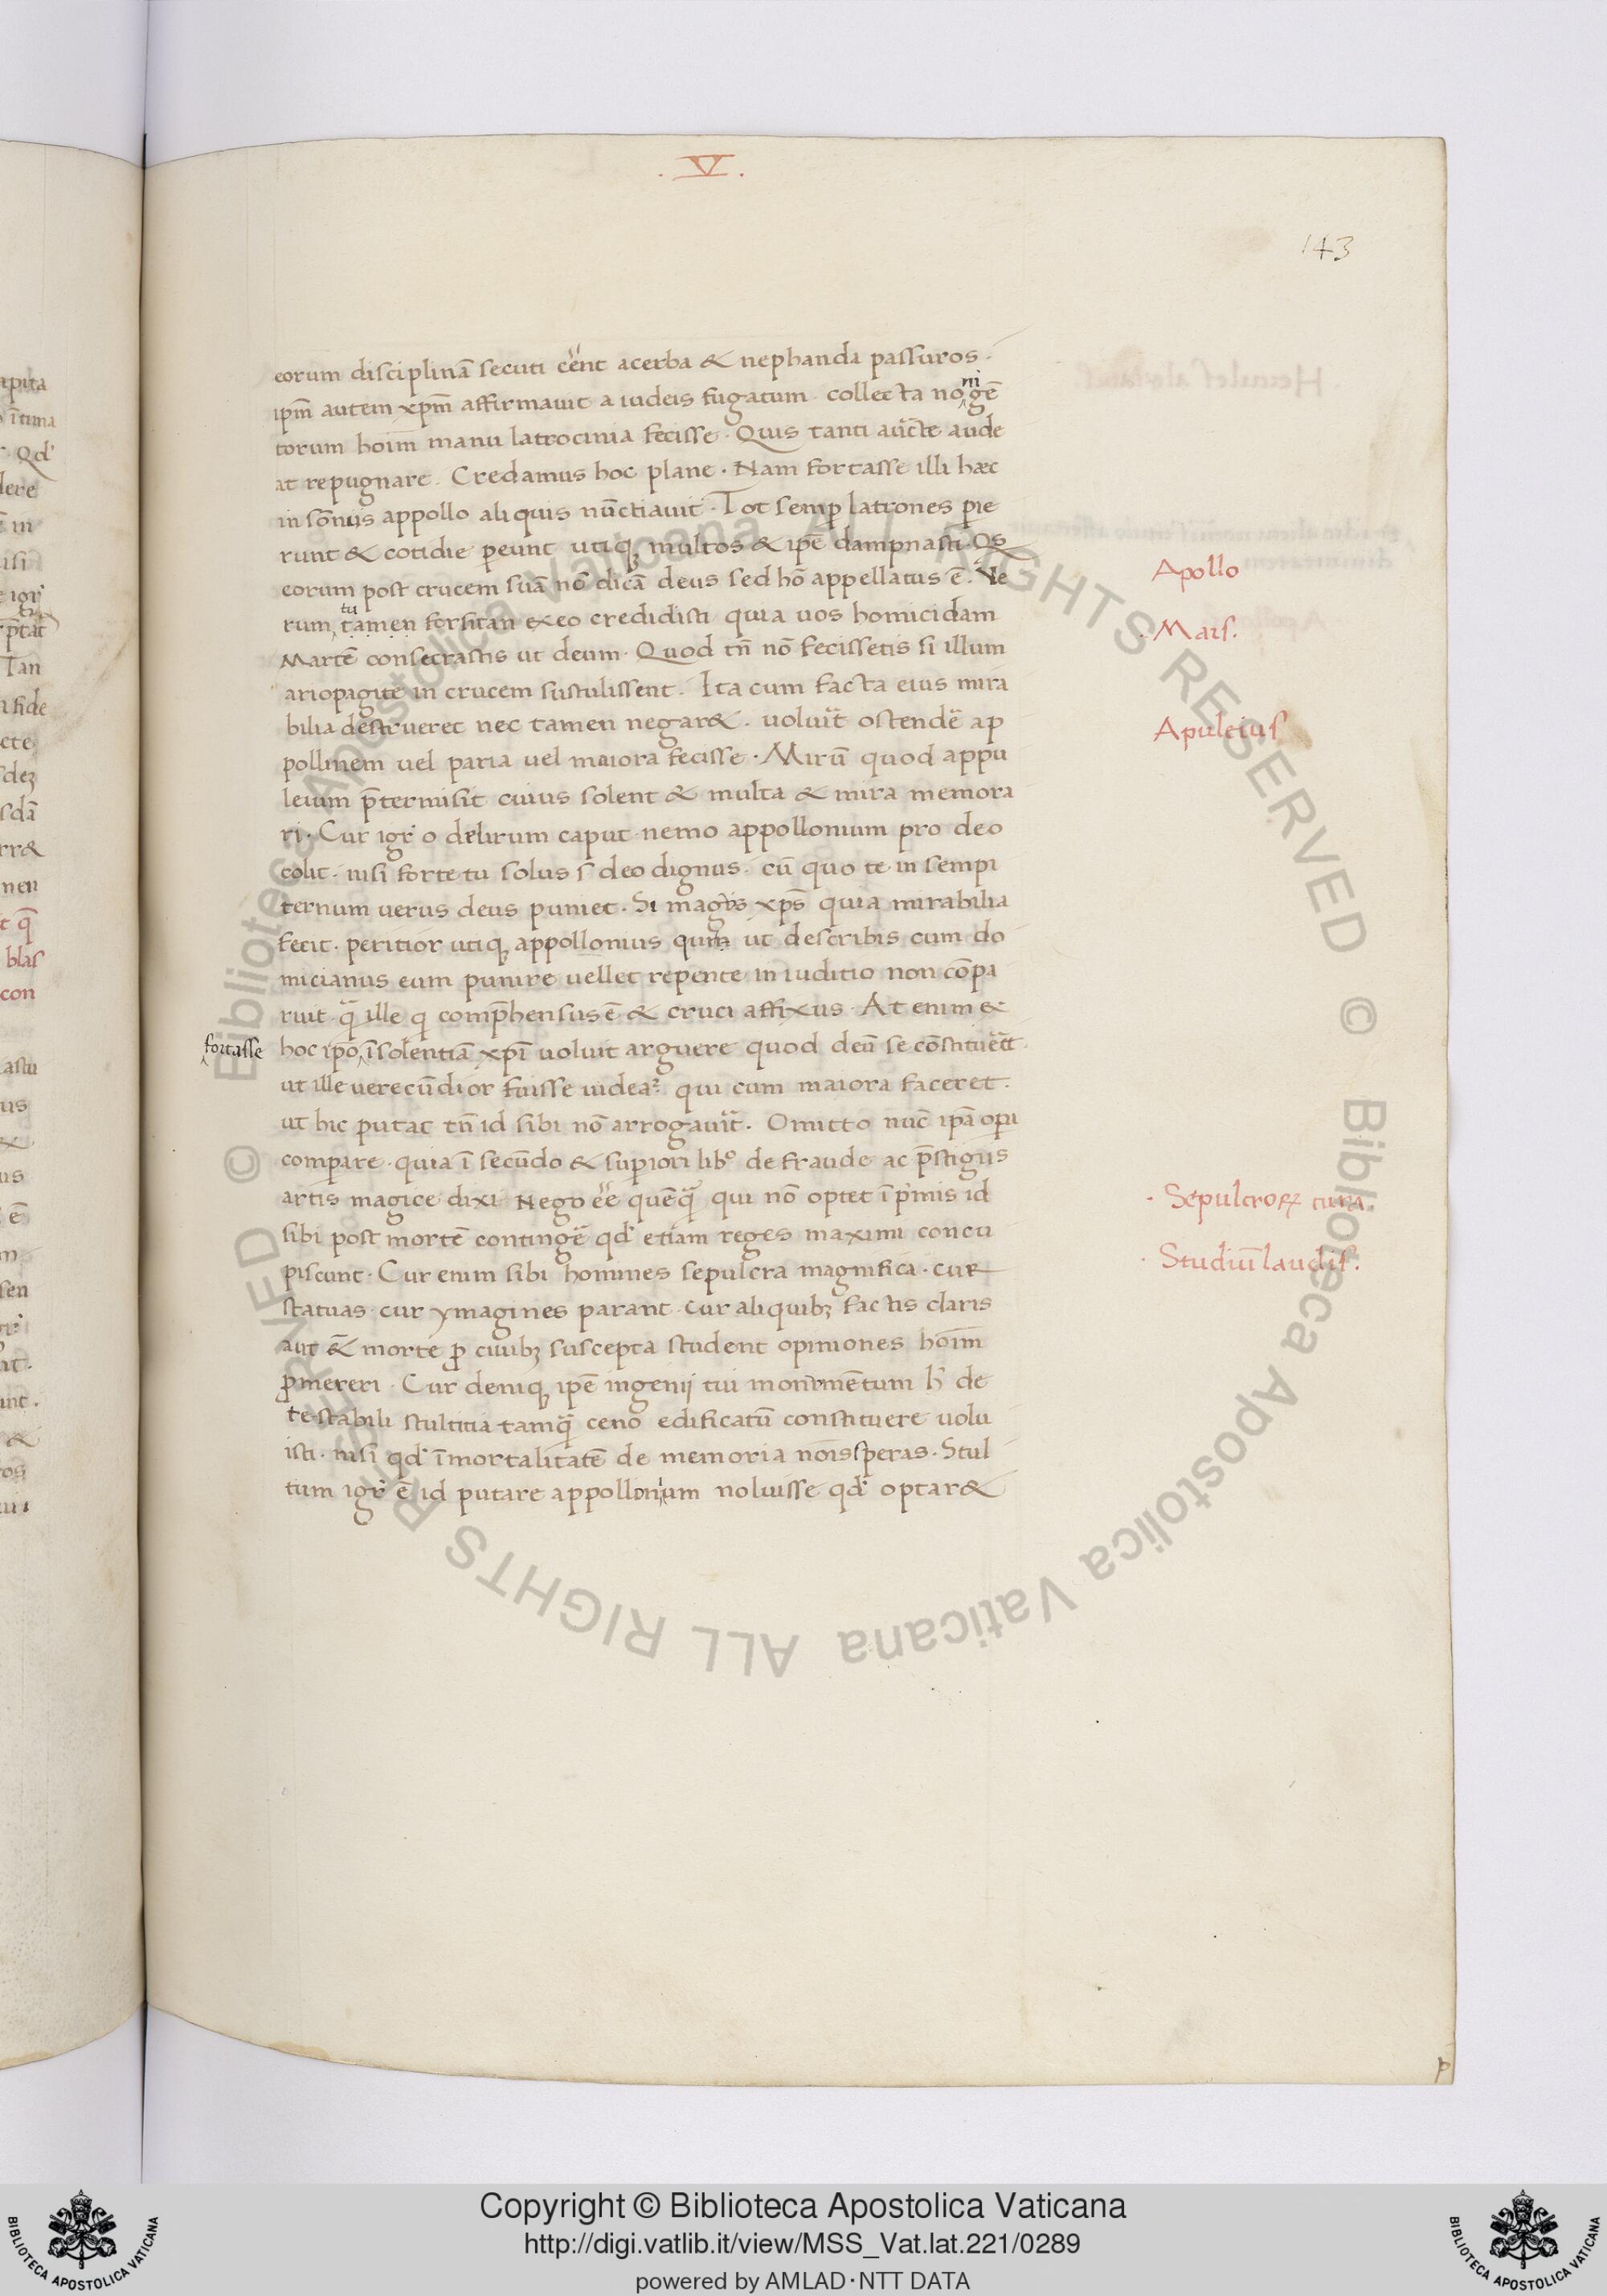 . V .
143
eorum disciplinā secuti eēnt acerba & nephanda passuros .
ipm̄ autem xpm̄ affirmavit a iudeis fugatum . collecta no ni gē
torum hoīm manu latrocinia fecisse . Quis tanti aūcte aude
at repugnare . Credamus hoc plane . Nam fortasse illi hæc
in sōnus appollo aliquis nūctiavit . Tot semp latrones pie
runt & cotidie peunt utiq; multos & ipē dampnasti Qs
eorum post crucem suā nō dicā deus sed hō appellatus ē . Ve
rum tu tamen forsitan ex eo credidisti quia uos homicidam
Martē consecrastis ut deum . Quod tn̄ nō fecissetis si illum
ariopagite in crucem sustulissent . Ita cum facta eius mira
bilia destrueret nec tamen negar& . voluīt ostendē ap
pollinem uel paria uel maiora fecisse . Mirū quod appu
leium p̄termisit cuius solent & multa & mira memora
ri . Cur igr̄ o delirum caput nemo appollonium pro deo
colit . nisi forte tu solus s deo dignus . cū quo te in sempi
ternum verus deus puniet . Si magus xp̄s quia mirabilia
fecit . peritior utiq; appollonius qui ut describis cum do
micianus eum punire uellet repente in iuditio non cōpa
ruit . q̄ ille q comp̄hensus ē & cruci affixus . At enim ex
fortasse
hoc ipō īsolentiā xpī voluit arguere quod deū se cōstituēt .
ut ille verecūdior fuisse videa℥ qui cum maiora faceret .
ut hic putat tn̄ id sibi nō arrogavīt . Omitto nūc ipā opa
compare . quia ī secūdo & supiori libº de fraude ac p̄stigiis
artis magice dixi . Nego eē quēq̄ qui nō optet ī pmis id
sibi post mortē contingē qd' etiam reges maximi concu
piscunt . Cur enim sibi homines sepulcra magnifica . cur
statuas cur ymagines parant . Cur aliquib; factis claris
aut &̄ morte p civib; suscepta student opiniones hoīm
pmereri . Cur deniq; ipē ingenij tui monumētum h de
testabili stultitia tamq̄ ceno edificatū constituere volu
isti . nisi qd' īmortalitatē de memoria nōis speras . Stul
tum igr̄ ē id putare appollonium noluisse qd' optar&
Apollo
. Mars .
Apuleius
. Sepulcroꝝ cura .
. Studiū laudis .
p
Copyright © Biblioteca Apostolica Vaticana
http://digi.vatlib.it/view/MSS_Vat.lat.221/0289
powered by AMLAD·NTT DATA
BIBLIOTECA APOSTOLICA VATICANA
BIBLIOTECA APOSTOLICA VATICANA
© Biblioteca Apostolica Vaticana ALL RIGHTS RESERVED © Biblioteca Apostolica Vaticana ALL RIGHTS RESERVED